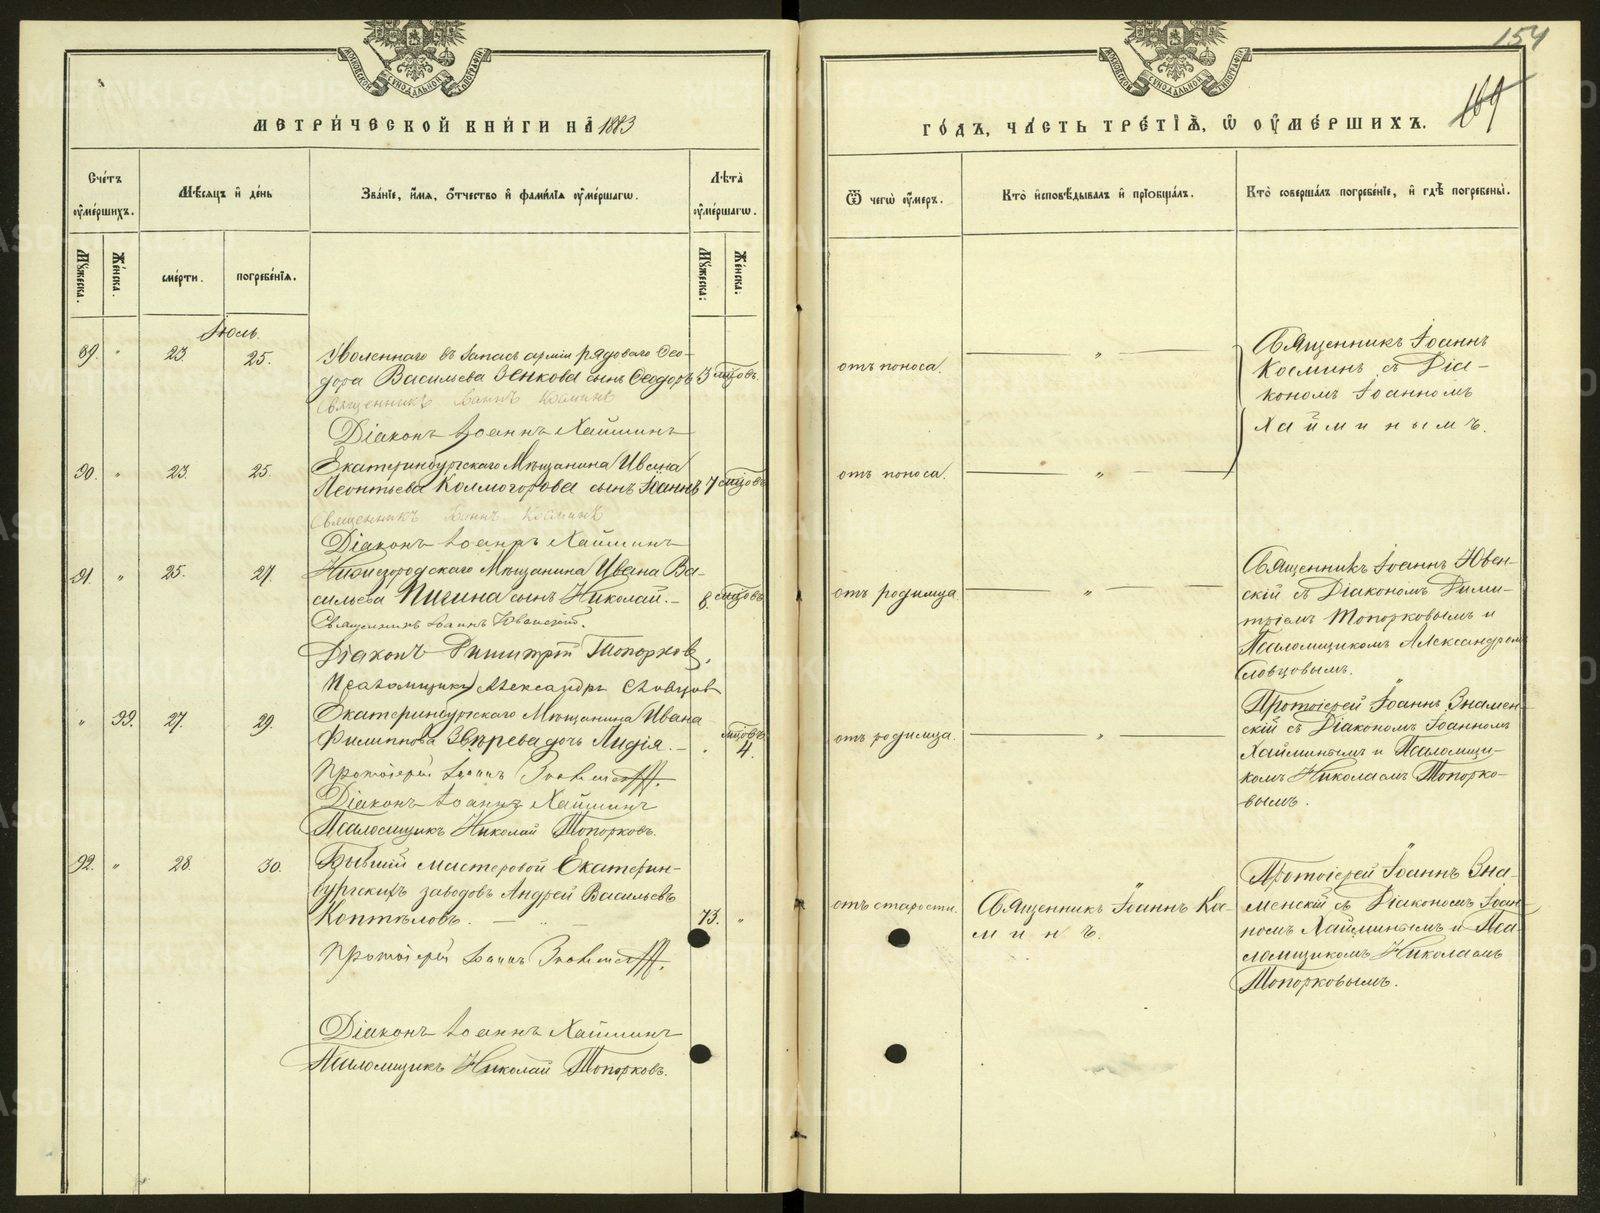 МЕТРИЧЕСКОЙ КНИГИ НА 1883
Счетъ умершихъ.
Мѣсяцъ и день
Званіе, имя, отчество и фамилія умершаго.
Лѣта умершаго.
Мужеска.
Женска.
смерти.
погребенія.
Мужеска:
Женска:
Іюль.
89. " 23 25. Уволеннаго въ запасъ арміи рядоваго Ѳео-
дора Васильева Зенкова сынъ Ѳеодоръ 3 мѣсяцовъ.
Священникъ Іоаннъ Косминъ
Діаконъ Іоаннъ Хайминъ
90. " 23. 25. Екатеринбургскаго Мѣщанина Ивана
Леонтьева Колмогорова сынъ Іоаннъ 7 мѣсяцовъ
Священникъ Іоаннъ Косминъ
Діаконъ Іоаннъ Хайминъ
91. " 25. 27. Нижегородскаго Мѣщанина Ивана Ва-
сильева Пигина сынъ Николай. 8. мѣсяцовъ
Священникъ Іоаннъ Ювенскій.
Діаконъ Димитрій Топорковъ,
Псаломщикъ Александръ Словцовъ
" 99. 27. 29. Екатеринбургскаго Мѣщанина Ивана
Филиппова Звѣрева дочь Лидія. мѣсяцовъ 4.
Протоіерей Іоаннъ Знаменскій.
Діаконъ Іоаннъ Хайминъ
Псаломщикъ Николай Топорковъ.
92. " 28. 30. Бывшій мастеровой Екатерин-
бургскихъ заводовъ Андрей Васильевъ
Коптѣловъ. 73. "
Протоіерей Іоаннъ Знаменскій.
Діаконъ Іоаннъ Хайминъ
Псаломщикъ Николай Топорковъ.
154
169
ГОДЪ, ЧАСТЬ ТРЕТІЯ, Ѡ УМЕРШИХЪ.
Ѿ чего умеръ.
Кто исповѣдывалъ и пріобщалъ.
Кто совершалъ погребеніе, и гдѣ погребены.
отъ поноса. "
Священникъ Іоаннъ
Косминъ съ Діа-
кономъ Іоанномъ
Хайминымъ.
отъ поноса. "
отъ родимца. "
Священникъ Іоаннъ Ювен-
скій съ Діакономъ Дими-
тріемъ Топорковымъ и
Псаломщикомъ Александромъ
Словцовымъ.
отъ родимца. "
Протоіерей Іоаннъ Знамен-
скій съ Діакономъ Іоанномъ
Хайминымъ и Псаломщи-
комъ Николаемъ Топорко-
вымъ.
отъ старости.
Священникъ Іоаннъ Кос-
минъ.
Протоіерей Іоаннъ Зна-
менскій съ Діакономъ Іоан-
номъ Хайминымъ и Пса-
ломщикомъ Николаемъ
Топорковымъ.
METRIKI.GASO-URAL.RU